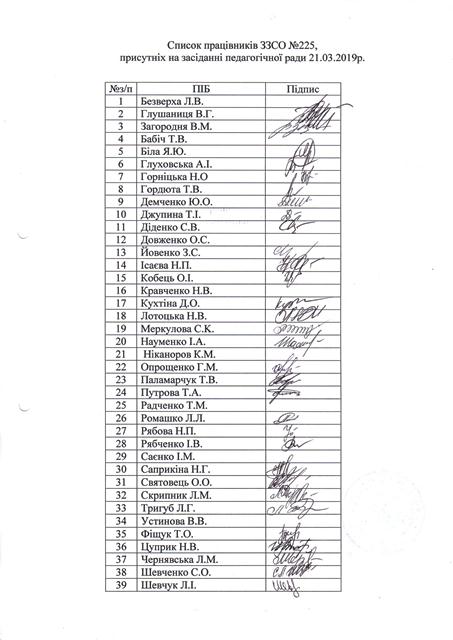 Список працівників ЗЗСО №225,
присутніх на засіданні педагогічної ради 21.03.2019р.
№з/п ПІБ Підпис
1 Безверха Л.В.
2 Глушаниця В.Г.
3 Загородня В.М.
4 Бабіч Т.В.
5 Біла Я.Ю.
6 Глуховська А.І.
7 Горніцька Н.О
8 Гордюта Т.В.
9 Демченко Ю.О.
10 Джупина Т.І.
11 Діденко С.В.
12 Довженко О.С.
13 Йовенко З.С.
14 Ісаєва Н.П.
15 Кобець О.І.
16 Кравченко Н.В.
17 Кухтіна Д.О.
18 Лотоцька Н.В.
19 Меркулова С.К.
20 Науменко І.А.
21 Ніканоров К.М.
22 Опрощенко Г.М.
23 Паламарчук Т.В.
24 Путрова Т.А.
25 Радченко Т.М.
26 Ромашко Л.Л.
27 Рябова Н.П.
28 Рябченко І.В.
29 Саєнко І.М.
30 Саприкіна Н.Г.
31 Святовець О.О.
32 Скрипник Л.М.
33 Тригуб Л.Г.
34 Устинова В.В.
35 Фіщук Т.О.
36 Цуприк Н.В.
37 Чернявська Л.М.
38 Шевченко С.О.
39 Шевчук Л.І.